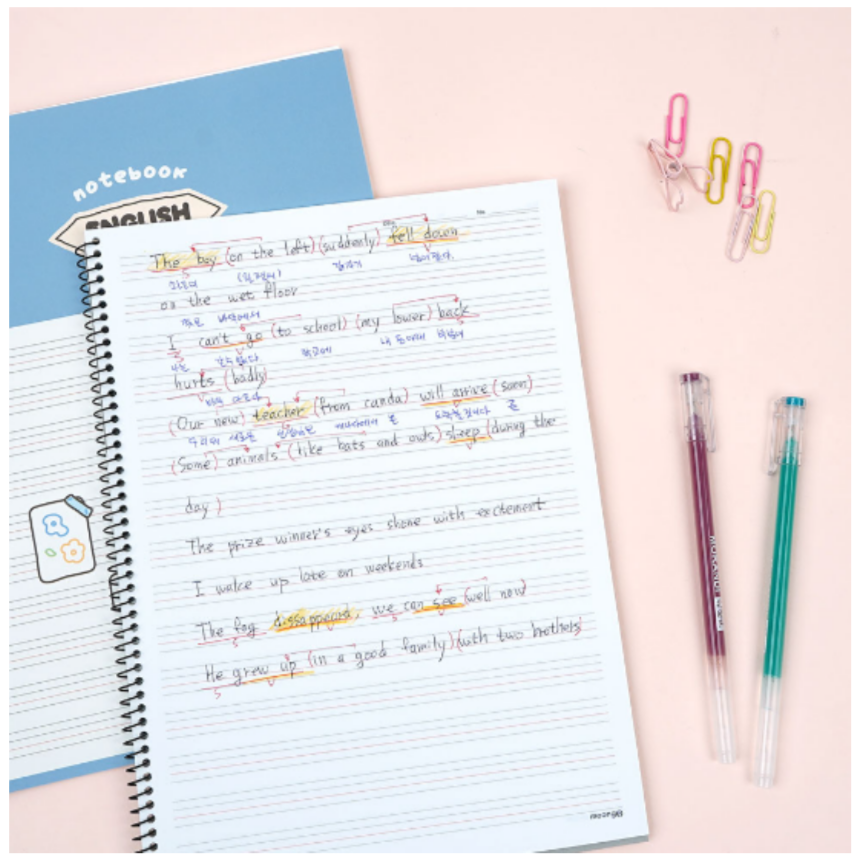 notebook
ENGLISH
No.
The boy (on the left) (suddenly) fell down
갑자기 넘어졌다
on the wet floor
젖은 바닥에서
I can't go (to school) (my lower) back
나는 학교에
hurts (badly)
(Our new) teacher (from canda) will arrive (soon)
우리의 새로운
(Some) animals (like bats and owls) sleep (during the
day)
The prize winner's eyes shone with excitement
I wake up late on weekends
The fog dissappeard, we can see (well now)
He grew up (in a good family) (with two brothers)